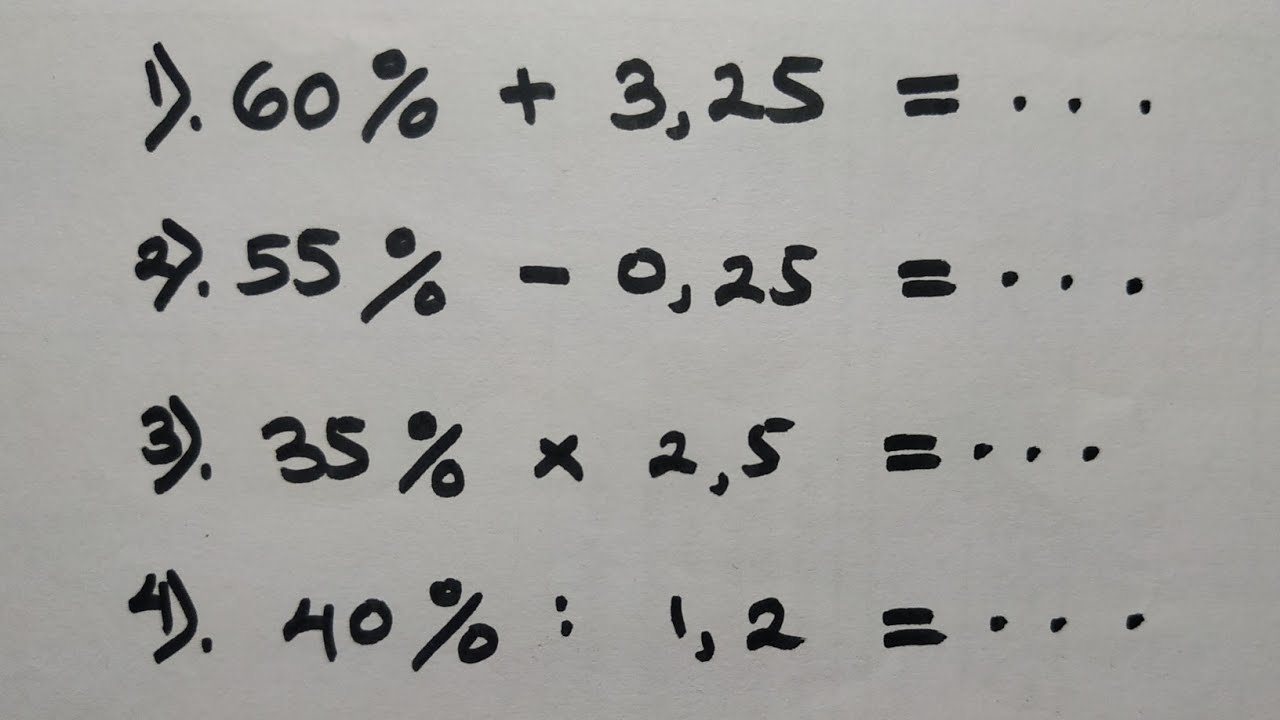 1). 60% + 3,25 = ...
2). 55% - 0,25 = ...
3). 35% × 2,5 = ...
4). 40% : 1,2 = ...